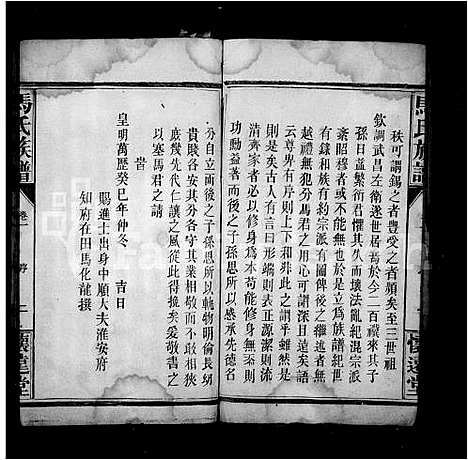 秩可謂錫之者豐受之者願矣至三世祖
欽調武昌左衛遂世居焉於今二百禩來其子
孫日益繁衍君懼其久而壞法亂紀混宗派
紊昭穆者或不能無也於是立為族譜紀世
有錄和族有約宗派有圖俾後之繼述者無
越禮無犯分馬君之用心可謂深且遠矣語
云尊卑有序而上下和非此之謂乎雖然又
則是矣古人有言曰形端則表正源潔則流
清齊家者必以修身為本苟能修身無忝所
以功勳益著而後之子孫思所以感承先德名
分自立而後之子孫思所以軌物明倫長幼
貴賤各安其分各守其業相敬而不敢相狹
庶幾先代仁讓之風從此得挽矣爰敬書之
以塞馬君之請
旹
皇明萬歷癸巳年仲冬 吉日
賜進士出身中順大夫淮安府
知府在田馬化龍撰
馬氏族譜
卷一 序
懷達堂
馬氏族譜